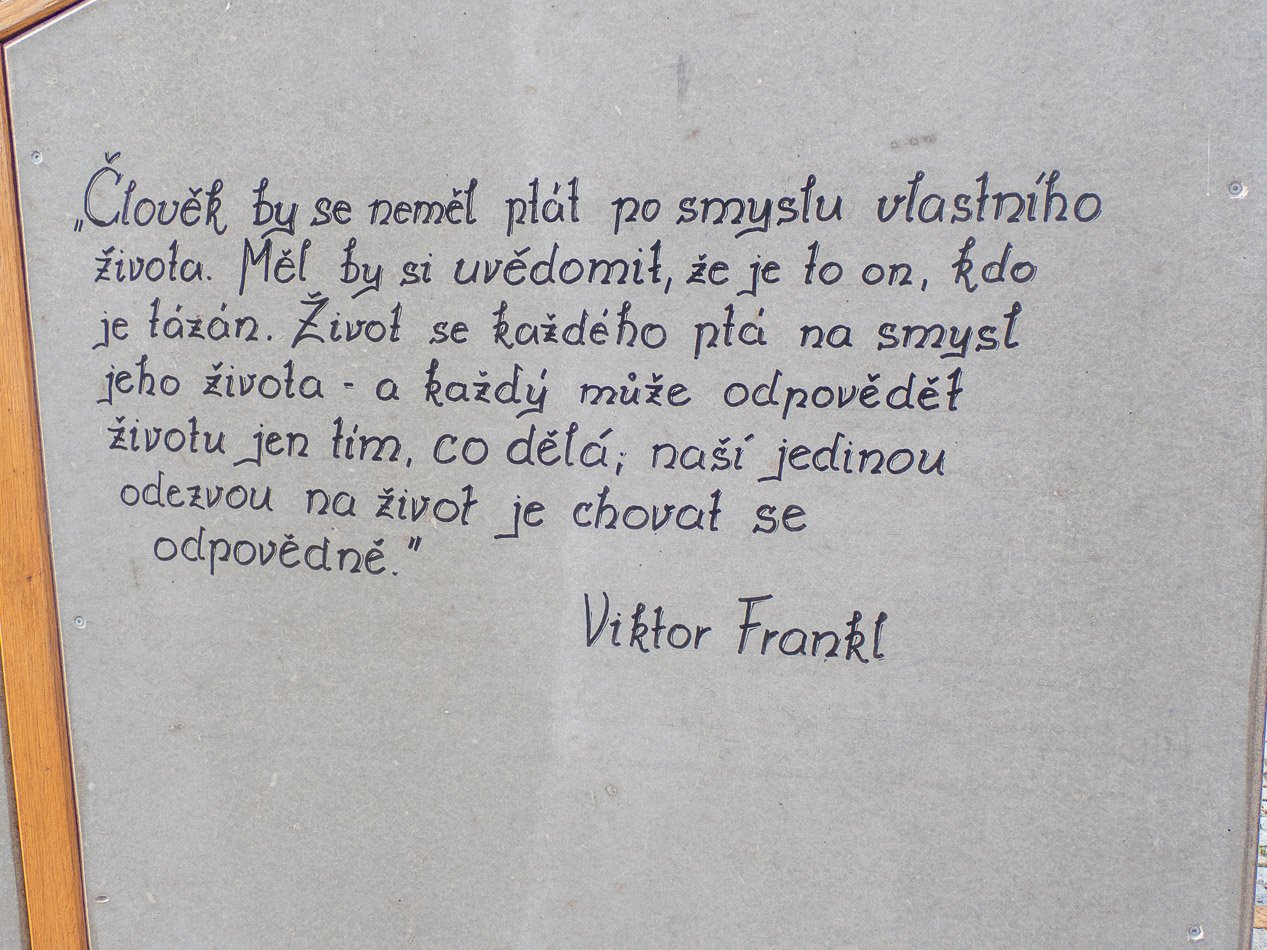 „Člověk by se neměl ptát po smyslu vlastního
života. Měl by si uvědomit, že je to on, kdo
je tázán. Život se každého ptá na smysl
jeho života - a každý může odpovědět
životu jen tím, co dělá; naší jedinou
odezvou na život je chovat se
odpovědně."
Viktor Frankl